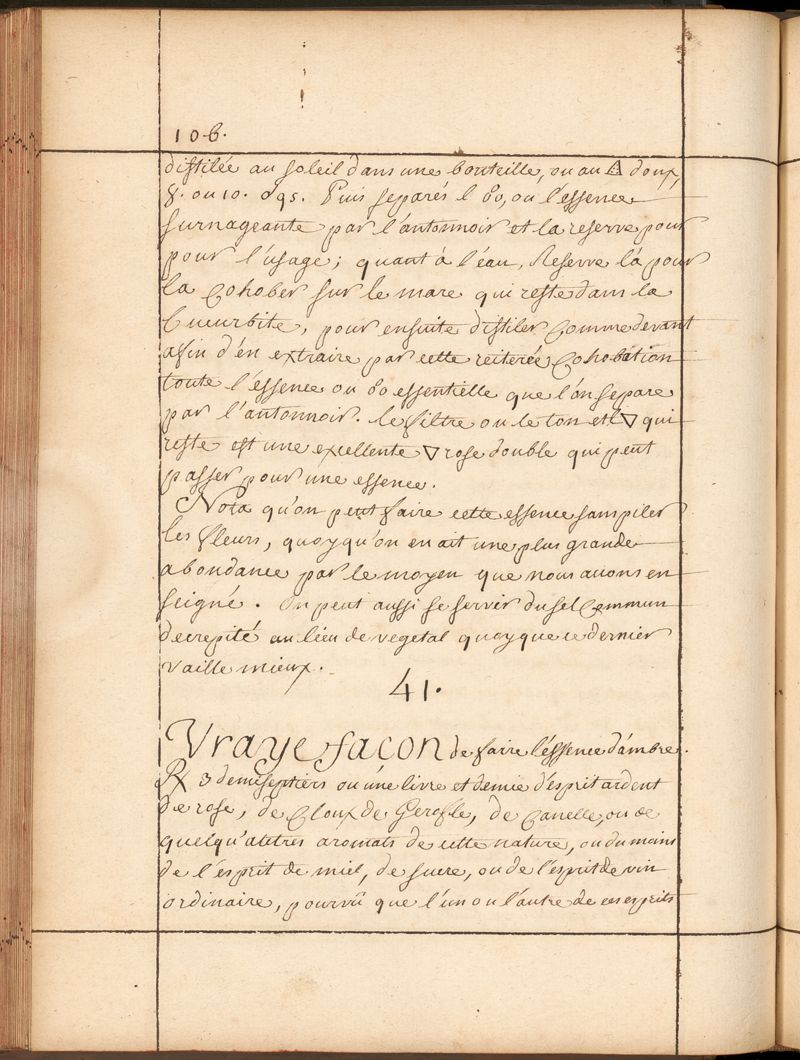 106.
distilée au soleil dans une bouteille, ou au 🜂 doux,
8. ou 10. Puis separés l ou l'essence
surnageante par l'antonnoir et la reserve pour
pour l'usage; quant à l'éau, Reserve là pour
la Cohober sur le marc qui reste dans la
Cucurbite, pour ensuite distiler Comme devant
afin d'én extraire par cette reiterée Cohobation
toute l'éssence ou essentielle que l'ón separe
par l'antonnoir. le filtre ou le ton et l 🜄 qui
reste est une excellente 🜄 rose double qui peut
passer pour une essence.
Nota qu'on peut faire cette essence sans piler
les fleurs, quoyqu'on en ait une plus grande
abondance par le moyen que nous avons en
seigné. On peut aussi se servir du sel Commun
decrepité au lieu de vegetal quoyque ce dernier
vaille mieux.
41.
Vraye façon de faire l'éssence d'ámbre.
℞ 3 demiseptiers ou úne livre et demie d'ésprit ardent
de rose, de Cloux de Gerofle, de Canelle, ou de
quelqu'autres aromats de cette nature, ou du moins
de l'ésprit de miel, de sucre, ou de l'esprit de vin
ordinaire, pourvû que l'un ou l'autre de ces esprits